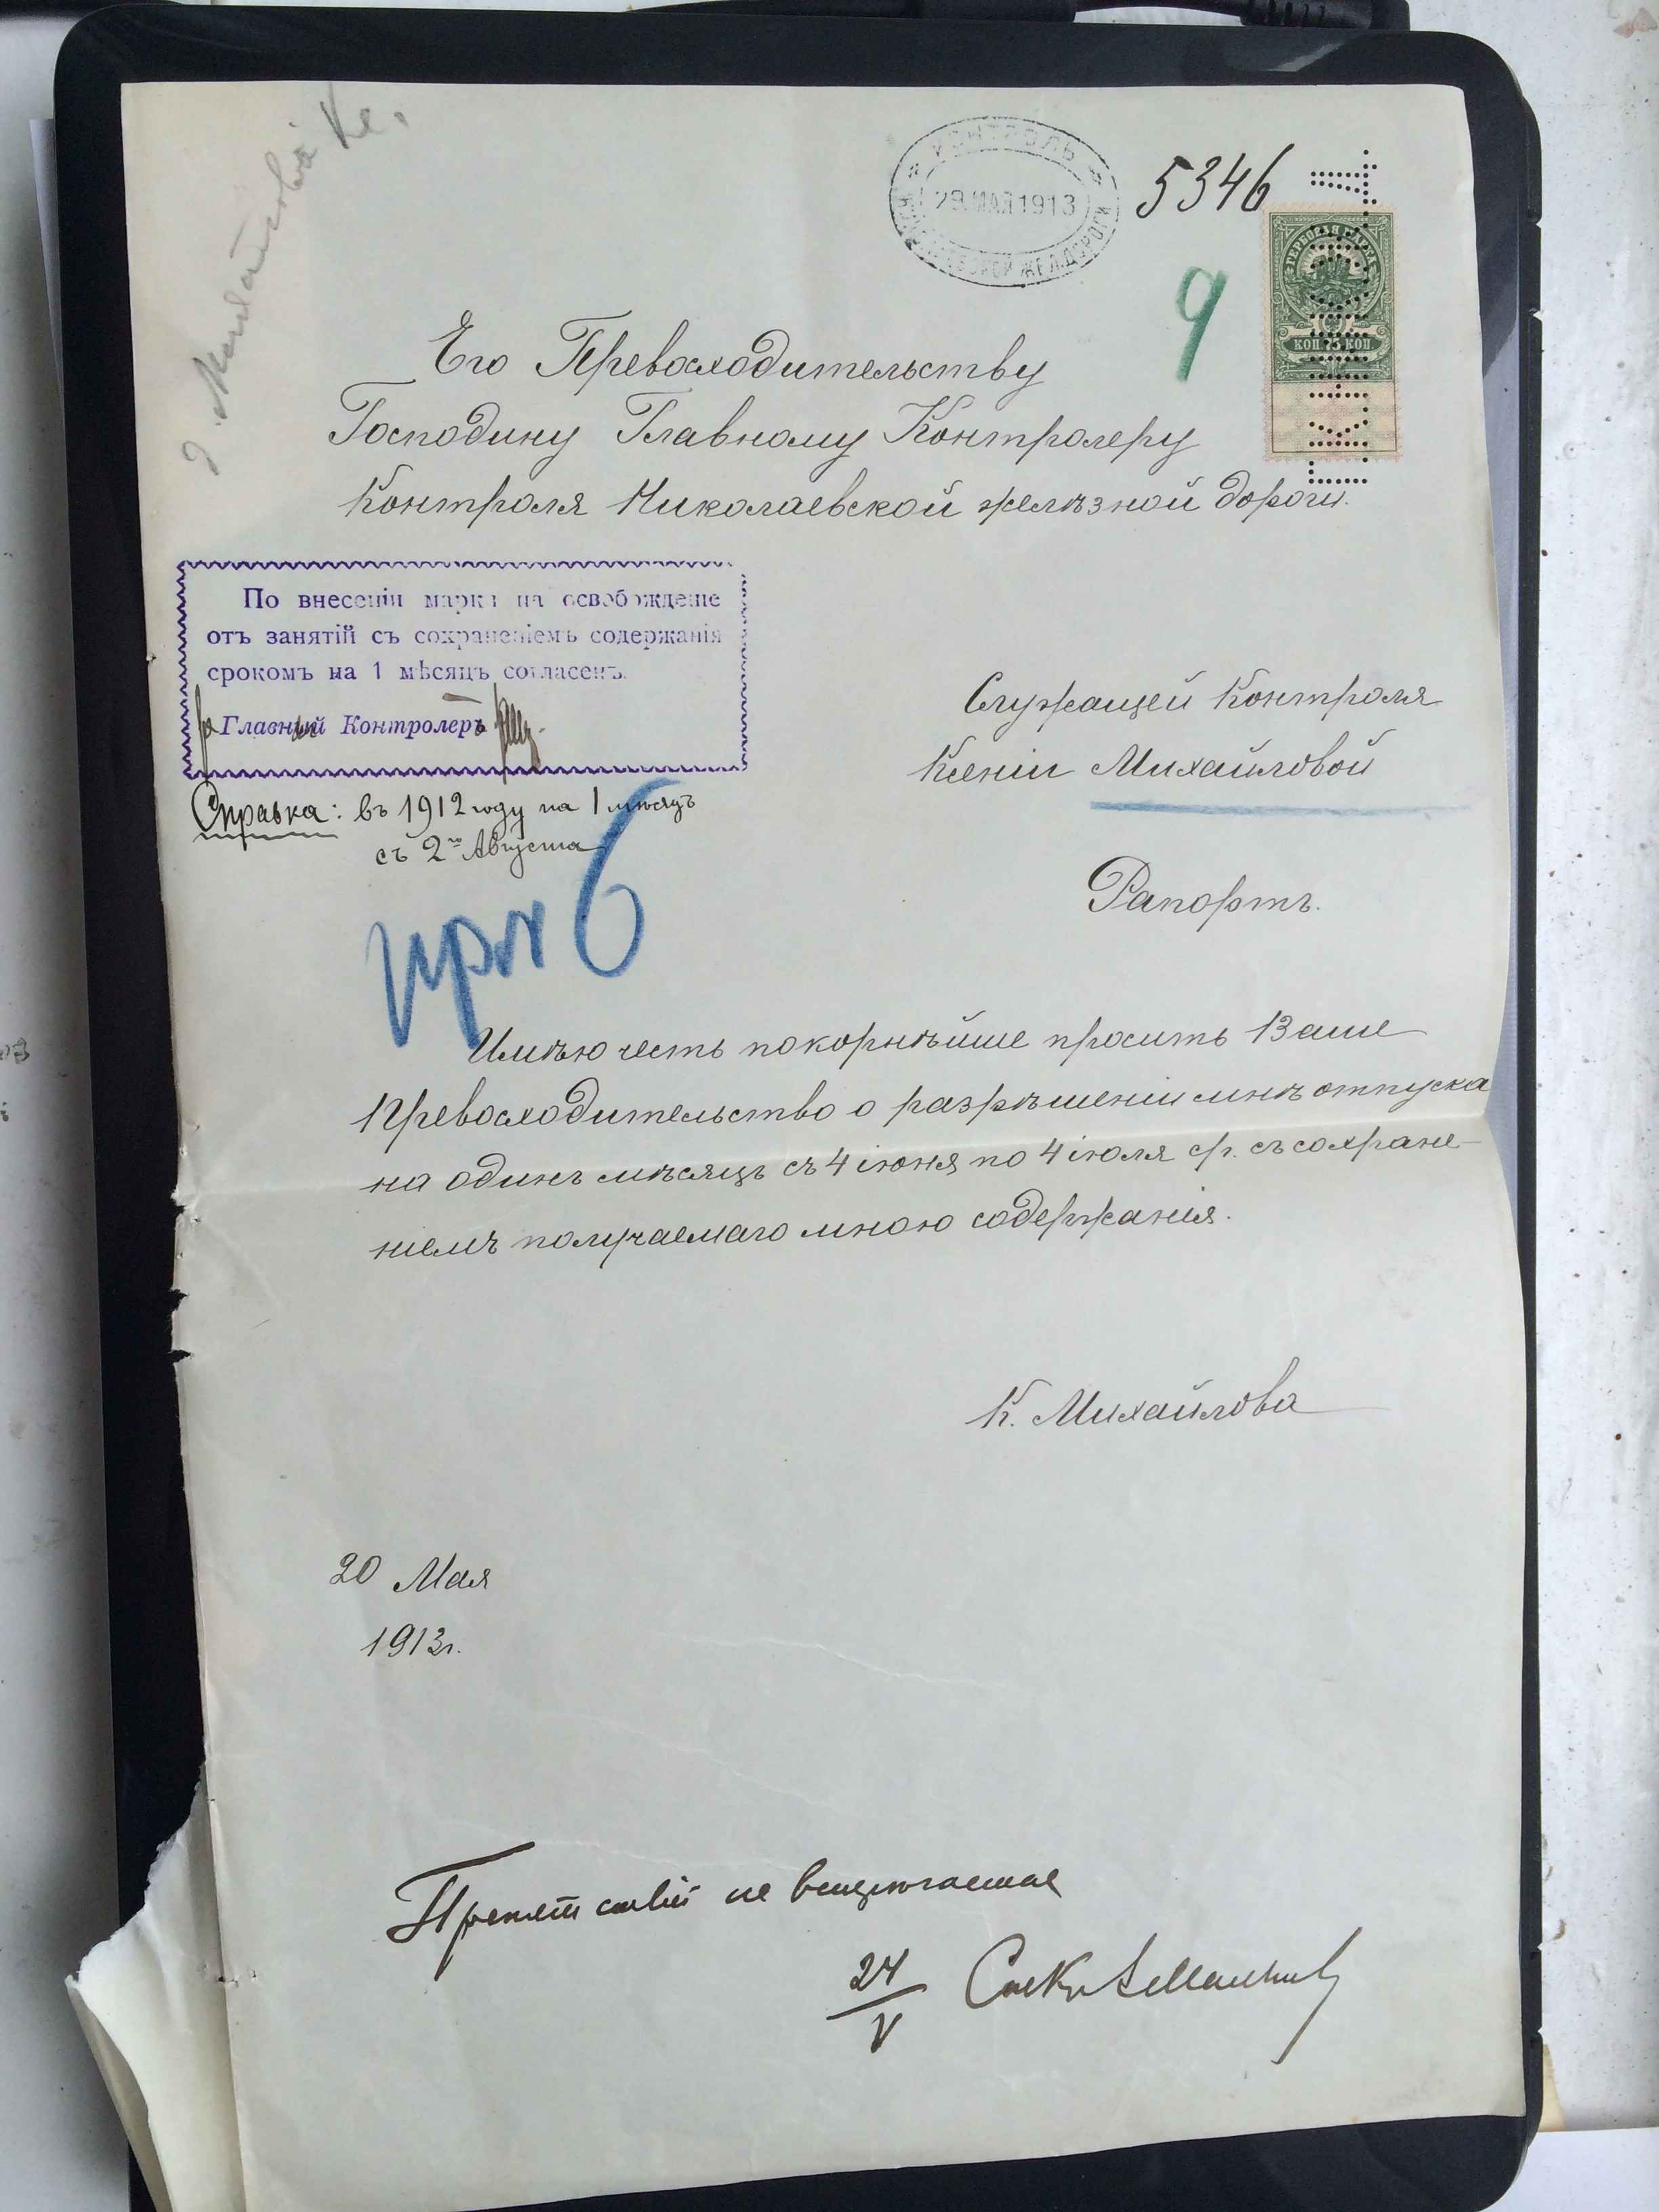 КОНТРОЛЬ
29 МАЯ 1913
НИКОЛАЕВСКОЙ ЖЕЛ. ДОРОГИ
5346
9
ГЕРБОВАЯ МАРКА
КОП. 75 КОП.
Его Превосходительству
Господину Главному Контролеру
Контроля Николаевской желѣзной дороги.
По внесеніи марки на освобожденіе
отъ занятій съ сохраненіемъ содержанія
срокомъ на 1 мѣсяцъ согласенъ.
Главный Контролеръ
Справка: въ 1912 году на 1 мѣсяцъ
съ 2го Августа
Служащей Контроля
Ксеніи Михайловой
Рапортъ.
Имѣю честь покорнѣйше просить Ваше
Превосходительство о разрѣшеніи мнѣ отпуска
на одинъ мѣсяцъ съ 4 іюня по 4 іюля с/г. съ сохране-
ніемъ получаемаго мною содержанія.
К. Михайлова
20 Мая
1913г.
Препятствій не встрѣчается
24/V